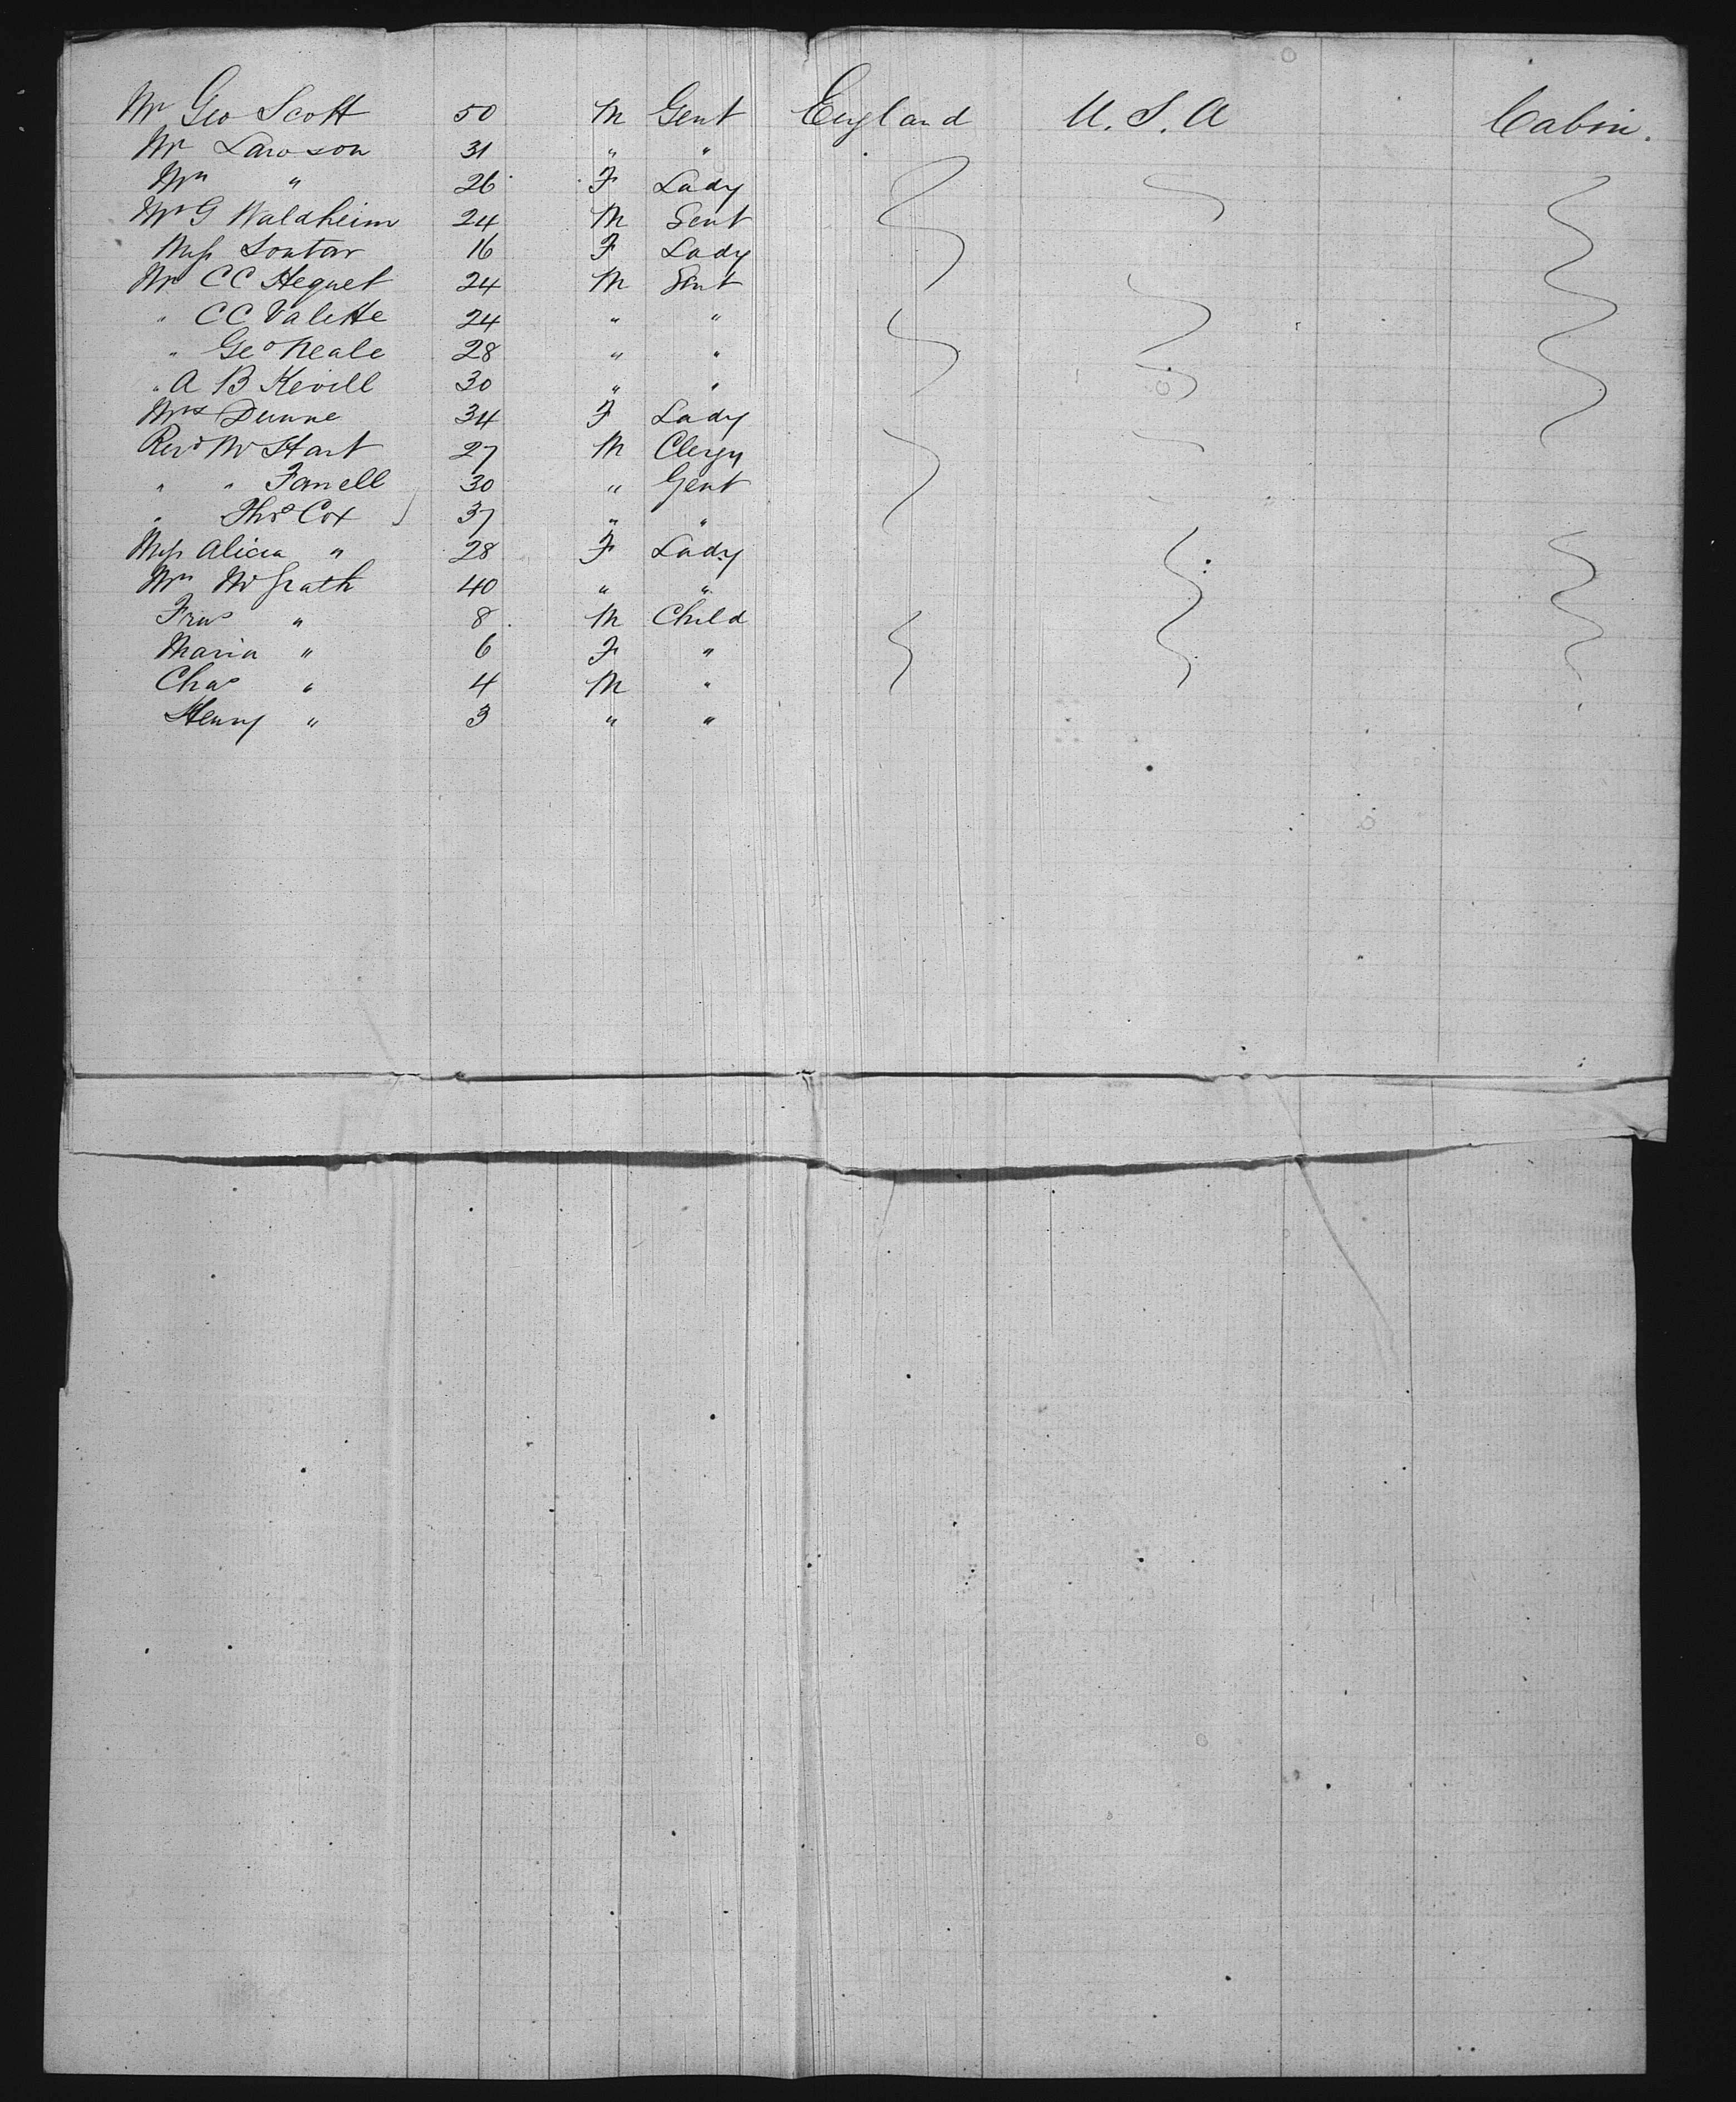 Mr Geo Scott 50 M Gent England U. S. A Cabin.
Mr Lawson 31 " "
Mrs " 26 F Lady
Mr G Waldheim 24 M Gent
Miss Soutar 16 F Lady
Mr C C Hequet 24 M Gent
" C C Valette 24 " "
" Geo Neale 28 " "
" A B Kevill 30 " "
Mrs Dunne 34 F Lady
Revd Mr Hart 27 M Clergy
" " Farrell 30 " Gent
" Thos Cox 37 " "
Miss Alicia " 28 F Lady
Mrs McGrath 40 " "
Fras " 8 M Child
Maria " 6 F "
Chas " 4 M "
Henry " 3 " "